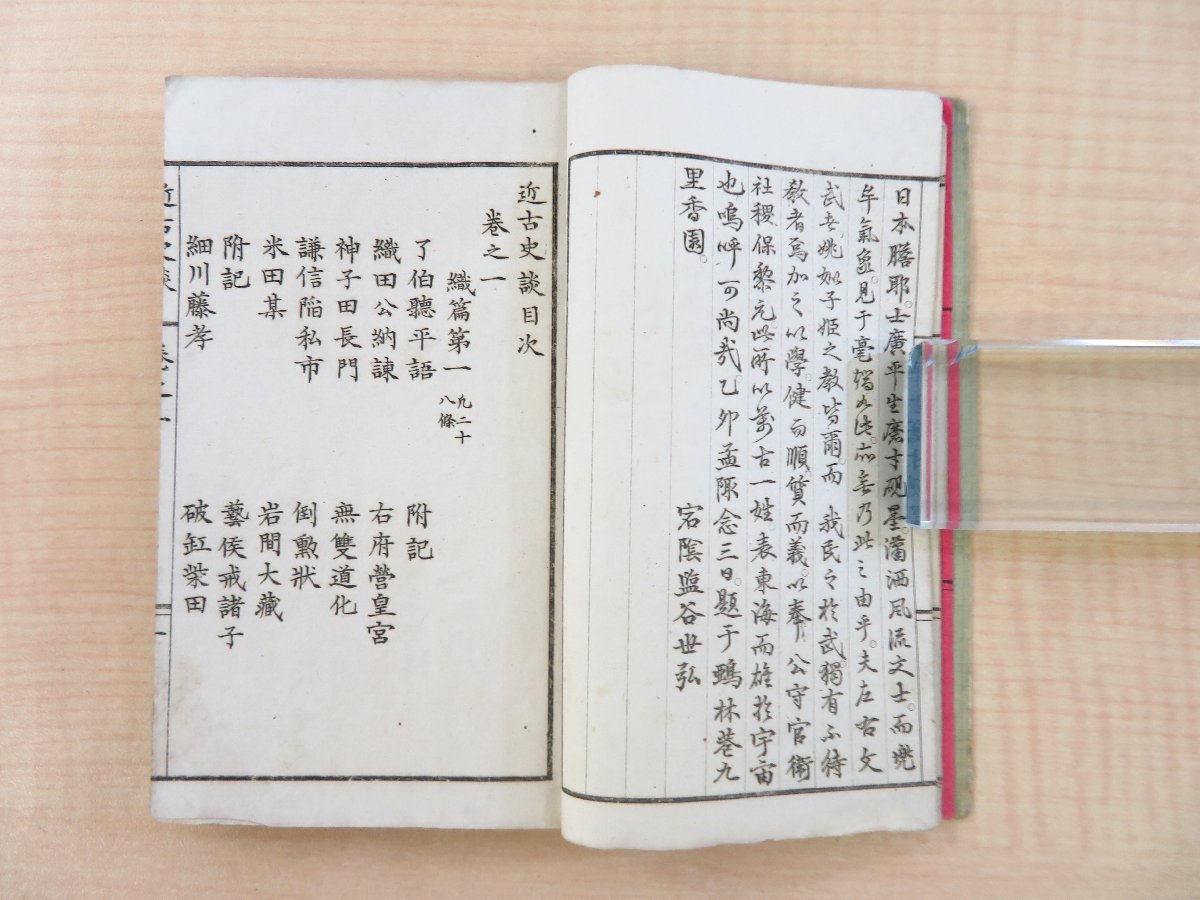 日本膽耶。士廣平生磨寸硯墨。瀟洒風流文士。而兠
牟氣益。見于毫端如此。亦無乃此之由乎。夫左右文
武。姚姒子姬之教皆爾。而我民之於武。獨有不待
教者焉。加之以學。健而順。質而義。以奉公守官。衛
社稷保黎元。此所以萬古一姓表東海而雄於宇宙
也。嗚呼可尚哉。乙卯孟陬念三日。題于鵶林巷九
里香園。
宕陰鹽谷世弘
近古史談目次
卷之一
織篇第一 凡二十八條
了伯聽平語 附記
織田公納諫 右府營皇宮
神子田長門 無雙道化
謙信陷私市 倒勳狀
米田某 岩間大藏
附記 藝侯戒諸子
細川藤孝 破缸柴田
近古史談 卷之一